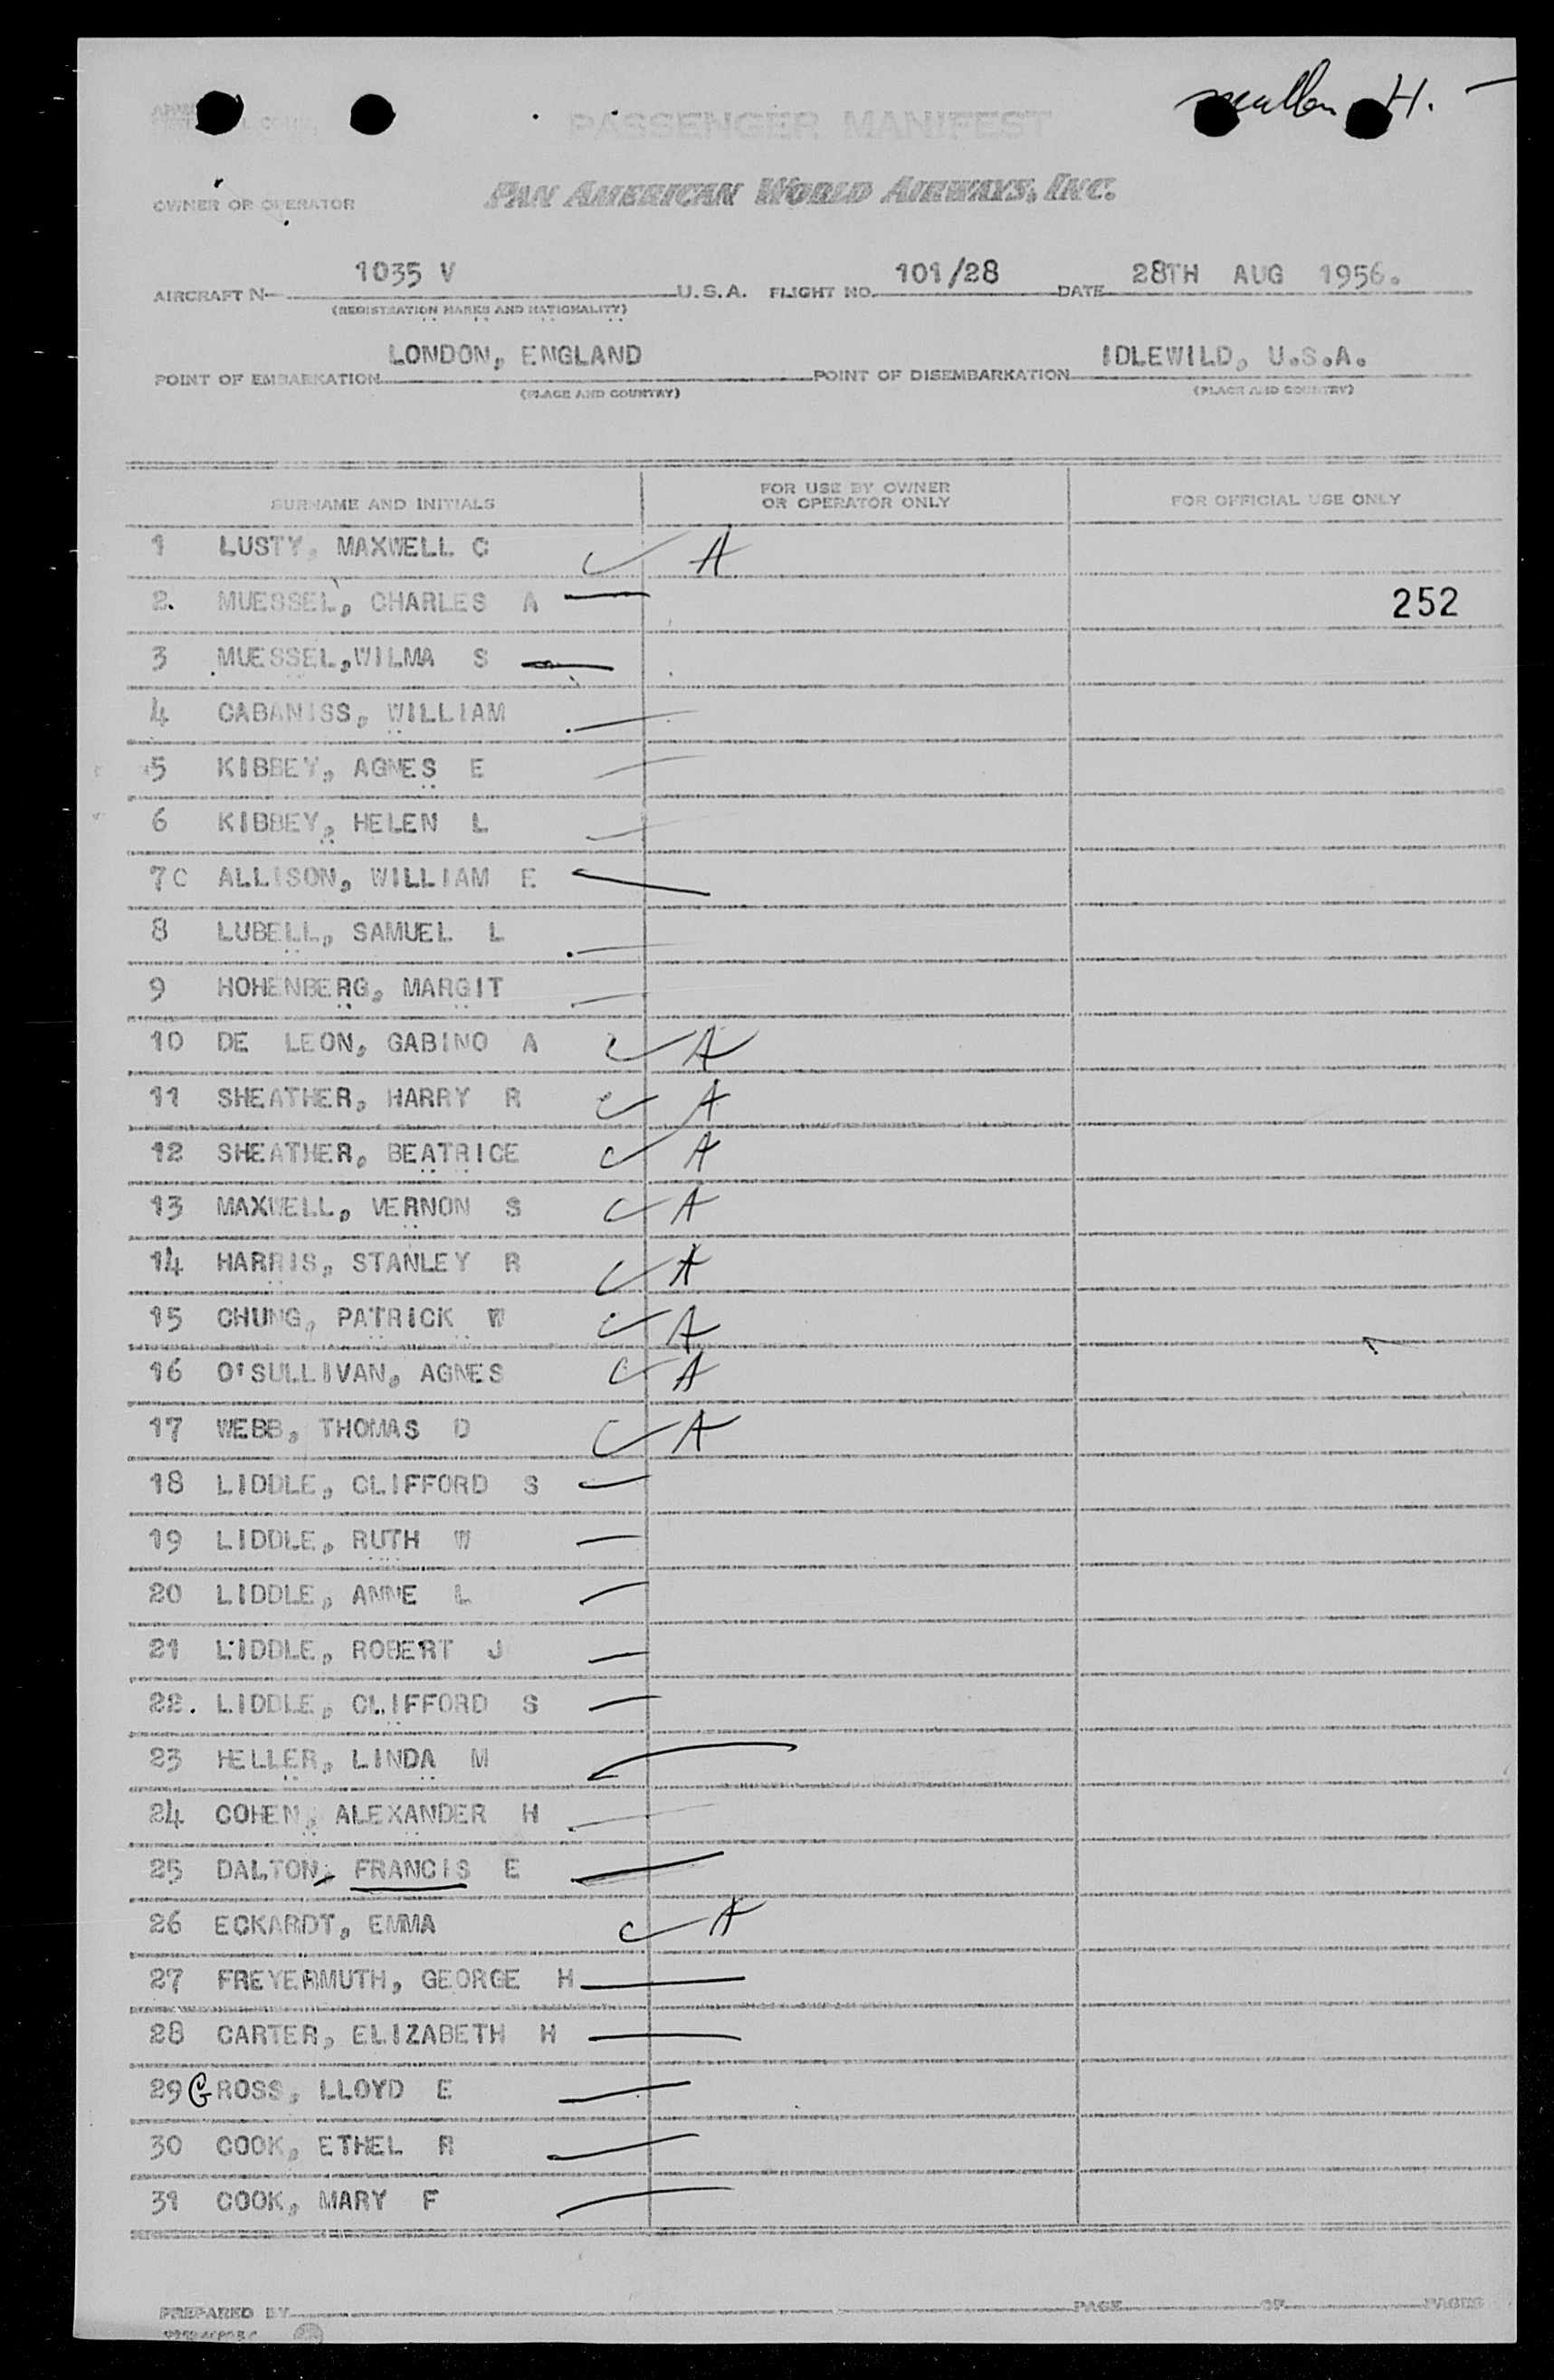 H.
PASSENGER MANIFEST
OWNER OR OPERATOR PAN AMERICAN WORLD AIRWAYS, INC.
AIRCRAFT N 1035 V U.S.A. FLIGHT NO. 101/28 DATE 28TH AUG 1956.
(REGISTRATION MARKS AND NATIONALITY)
POINT OF EMBARKATION LONDON, ENGLAND POINT OF DISEMBARKATION IDLEWILD, U.S.A.
(PLACE AND COUNTRY) (PLACE AND COUNTRY)
SURNAME AND INITIALS FOR USE BY OWNER OR OPERATOR ONLY FOR OFFICIAL USE ONLY
1 LUSTY, MAXWELL C A
2. MUESSEL, CHARLES A 252
3 MUESSEL,WILMA S
4 CABANISS, WILLIAM
5 KIBBEY, AGNES E
6 KIBBEY, HELEN L
7C ALLISON, WILLIAM E
8 LUBELL, SAMUEL L
9 HOHENBERG, MARGIT
10 DE LEON, GABINO A A
11 SHEATHER, HARRY R A
12 SHEATHER, BEATRICE A
13 MAXWELL, VERNON S A
14 HARRIS, STANLEY R A
15 CHUNG, PATRICK W A
16 O'SULLIVAN, AGNES A
17 WEBB, THOMAS D A
18 LIDDLE, CLIFFORD S
19 LIDDLE, RUTH W
20 LIDDLE, ANNE L
21 LIDDLE, ROBERT J
22. LIDDLE, CLIFFORD S
23 HELLER, LINDA M
24 COHEN, ALEXANDER H
25 DALTON, FRANCIS E
26 ECKARDT, EMMA A
27 FREYERMUTH, GEORGE H
28 CARTER, ELIZABETH H
29 GROSS, LLOYD E
30 COOK, ETHEL R
31 COOK, MARY F
PREPARED BY PAGE OF PAGES